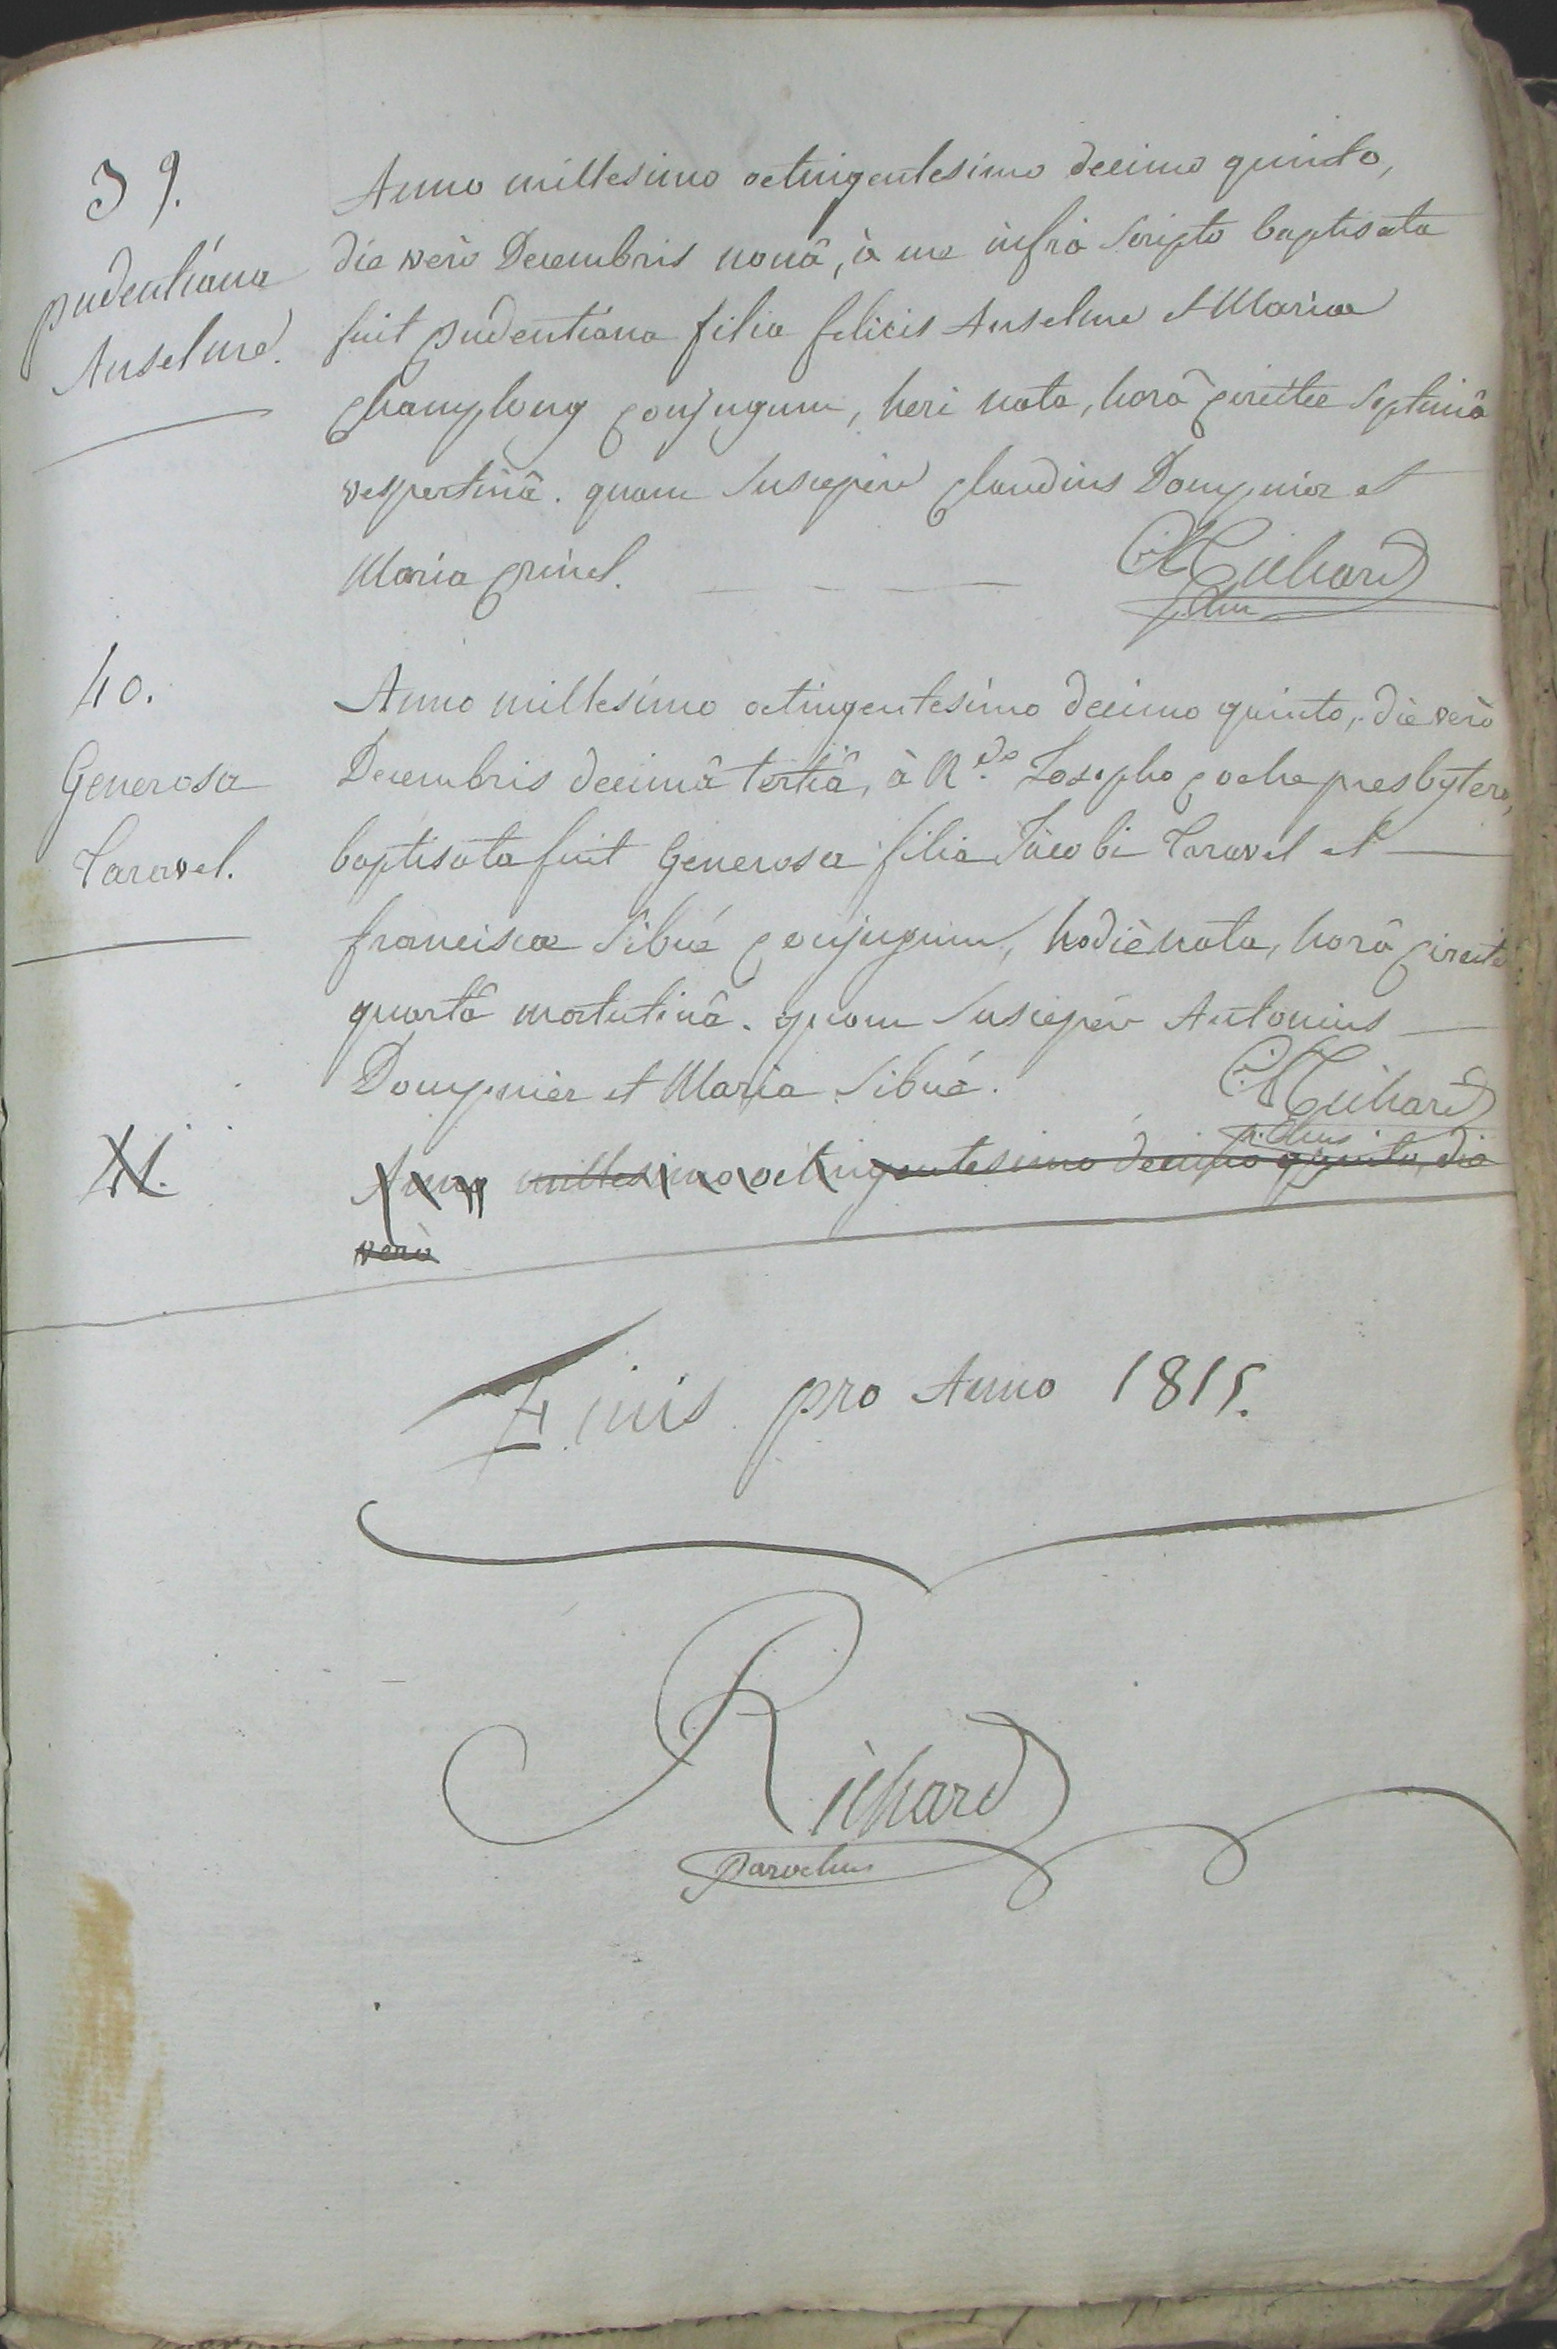 39.
pudentiana
Anselme.
Anno millesimo octingentesimo decimo quinto,
die verò Decembris nonâ, à me infrà scripto baptisata
fuit pudentiana filia felicis Anselme et Mariæ
champlong conjugum, heri nata, horâ circiter septimâ
vespertinâ. quam suscepêre claudius Dompnier et
Maria prinel.
Richard
40.
Generosa
Taravel.
Anno millesimo octingentesimo decimo quinto, die verò
Decembris decimâ tertiâ, à R.do Josepho coche presbytero,
baptisata fuit Generosa filia Jacobi Taravel et
franciscæ Sibué conjugum, hodiè nata, horâ circiter
quartâ matutinâ. quam suscepêre Antonius
Dompnier et Maria Sibué.
Richard
p.chus
41.
Anno millesimo octingentesimo decimo quinto, die
verò
Finis pro Anno 1815.
Richard
parochus